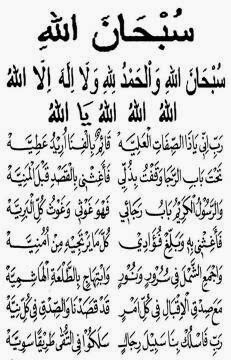 سُبْحَانَ اللهِ
سُبْحَانَ اللهِ وَالْحَمْدُ لِلهِ وَلَا اِلٰهَ اِلَّا اللهُ
اللهُ اللهُ اللهُ يَا اللهُ
رَبِّ اِنِّي يَا ذَا الصِّفَاتِ الْعَلِيَّهْ قَائِمٌ بِالْفِنَا اُرِيْدُ عَطِيَّهْ
تَحْتَ بَابِ الرَّجَا وَقَفْتُ بِذُلِّي فَأَغِثْنِي بِالْقَصْدِ قَبْلَ الْمَنِيَّهْ
وَالرَّسُوْلُ الْكَرِيْمُ بَابُ رَجَائِي فَهُوَ غَوْثِي وَغَوْثُ كُلِّ الْبَرِيَّهْ
فَأَغِثْنِي بِهِ وَبَلِّغْ فُؤَادِي كُلَّ مَا يَرْتَجِيْهِ مِنْ اُمْنِيَّهْ
وَاجْمَعِ الشَّمْلَ فِي سُرُوْرٍ وَنُوْرٍ وَابْتِهَاجٍ بِالطَّلْعَةِ الْهَاشِمِيَّهْ
مَعَ صِدْقِ الْاِقْبَالِ فِي كُلِّ اَمْرٍ قَدْ قَصَدْنَا وَالصِّدْقِ فِي كُلِّ نِيَّهْ
رَبِّ فَاسْلُكْ بِنَا سَبِيْلَ رِجَالٍ سَلَكُوْا فِي التُّقَى طَرِيْقًا سَوِيَّهْ